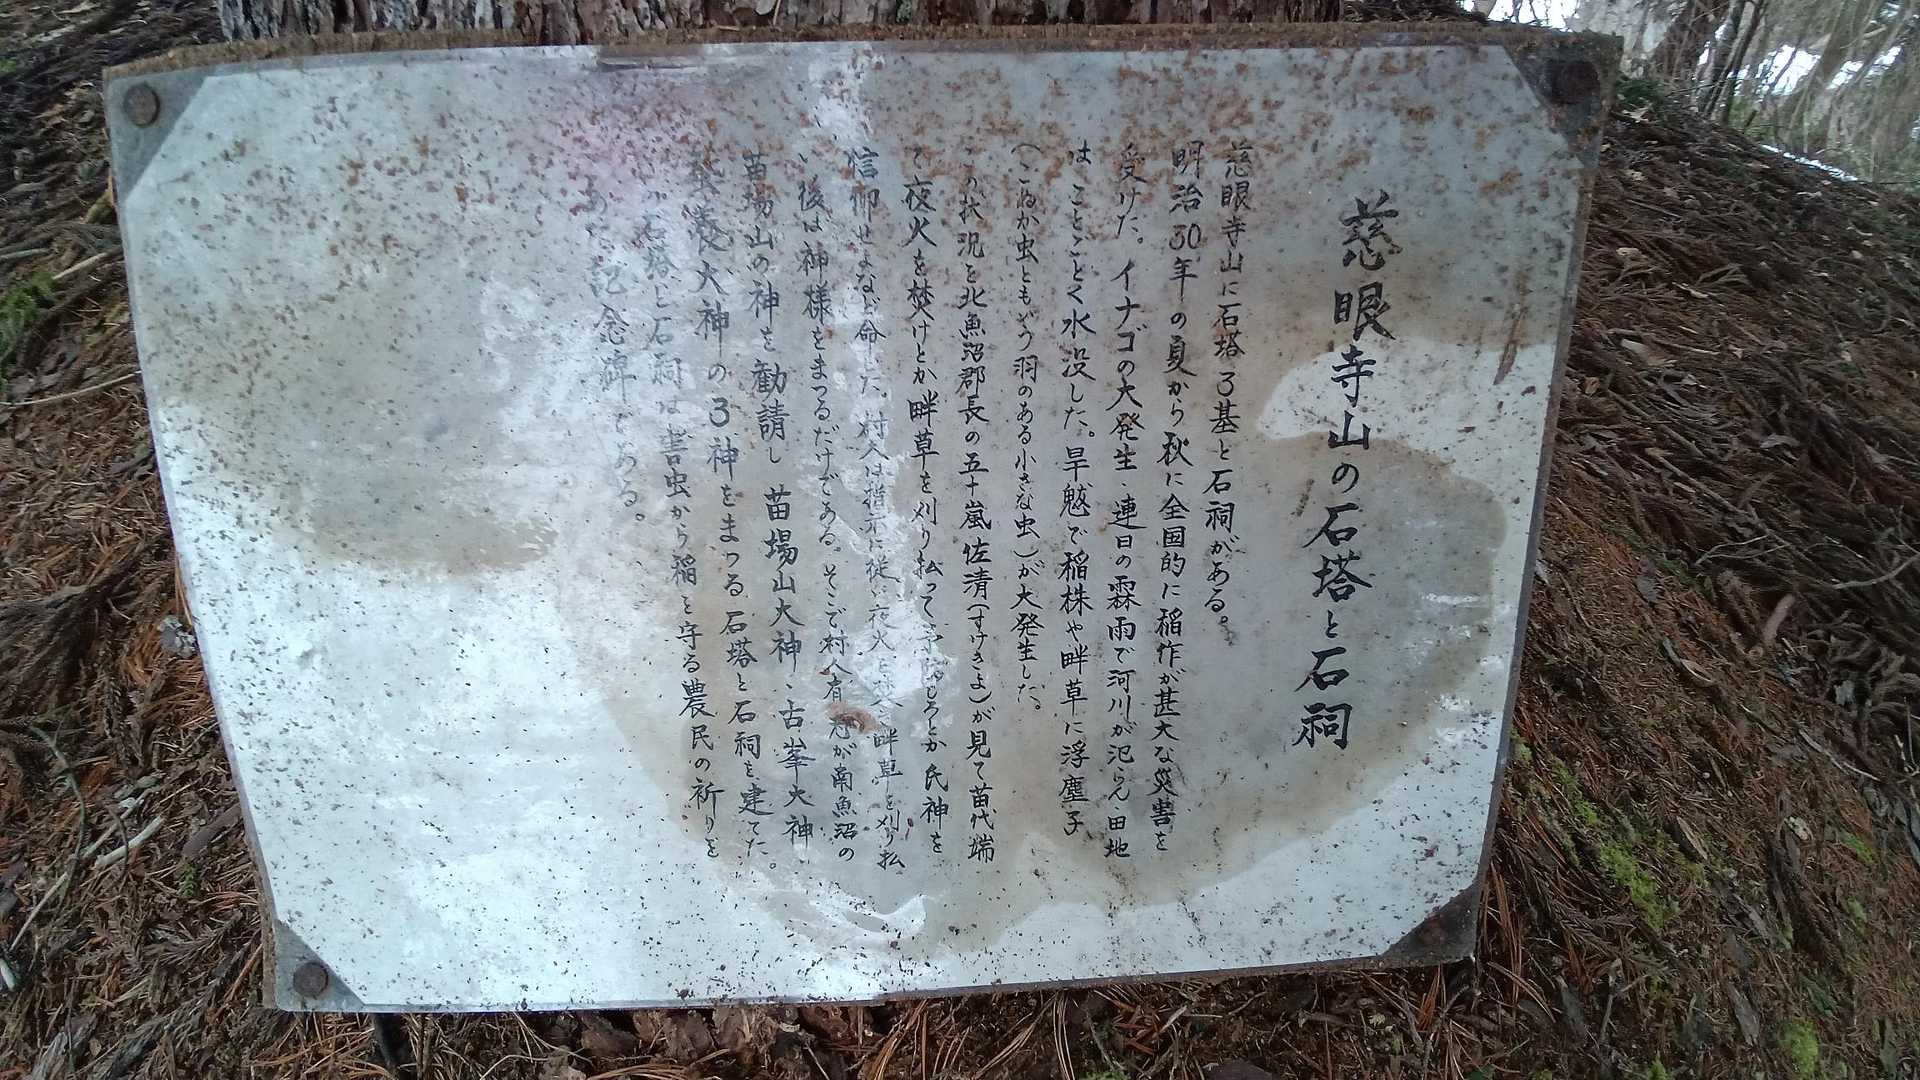 慈眼寺山の石塔と石祠
慈眼寺山に石塔3基と石祠がある。
明治30年の夏から秋に全国的に稲作が甚大な災害を
受けた。イナゴの大発生、連日の霖雨で河川が氾らん田地
は、ことごとく水没した。旱魃で稲株や畔草に浮塵子
(こぬか虫ともいう羽のある小さな虫)が大発生した。
この状況を北魚沼郡長の五十嵐佐清(すけきよ)が見て苗代端
で夜火を焚けとか畔草を刈り払って予防しろとか氏神を
信仰せよなど命じた。村人は指示に従い夜火を焚き畔草を刈り払
い後は神様をまつるだけである。そこで村人有志が南魚沼の
苗場山の神を勧請し苗場山大神、古峯大神、
蚕養大神の3神をまつる石塔と石祠を建てた。
石塔と石祠は害虫から稲を守る農民の祈りを
記念碑である。